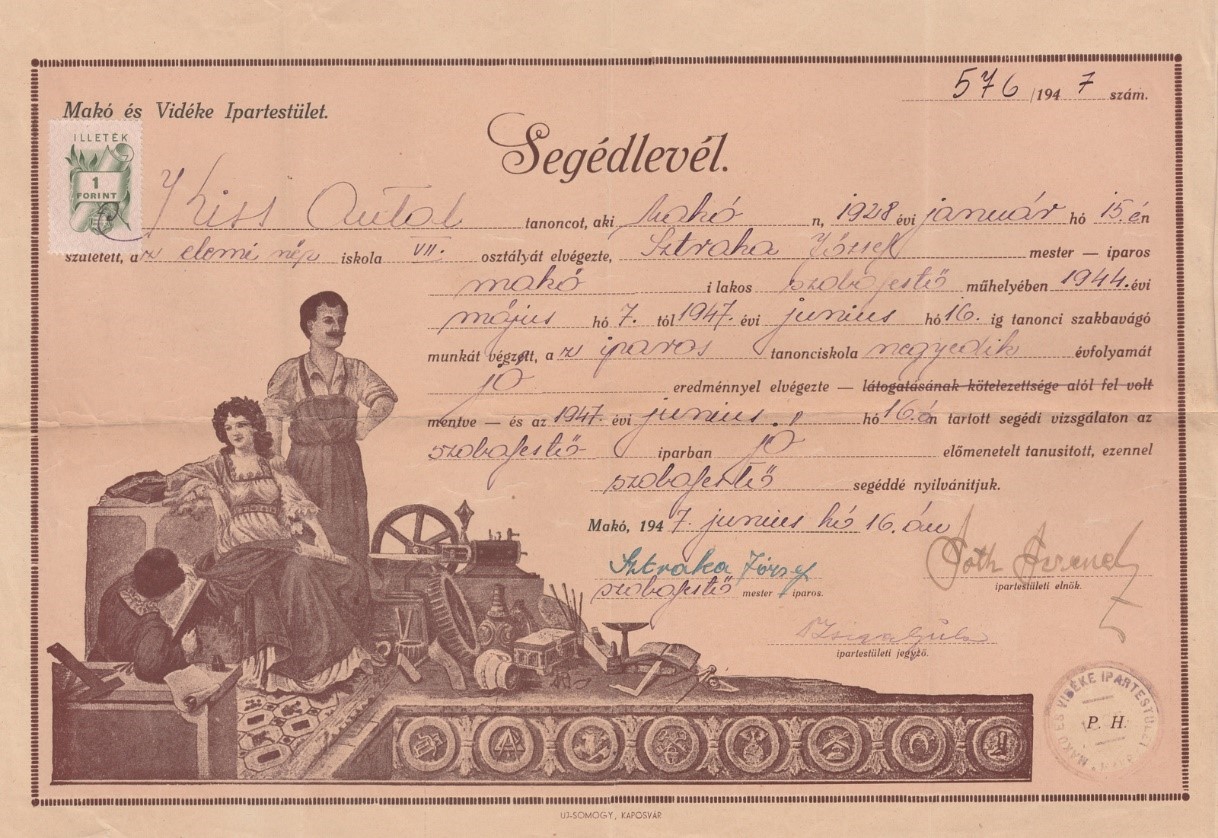 576 /1947 szám.
Makó és Vidéke Ipartestület.
ILLETÉK
1
FORINT
Segédlevél.
Kiss Antal tanoncot, aki Makó n, 1928 évi január hó 15.én
született, az elemi nép iskola VII. osztályát elvégezte, Sztraka József mester — iparos
makó i lakos szobafestő műhelyében 1944. évi
május hó 7. től 1947. évi junius hó 16. ig tanonci szakbavágó
munkát végzett, a z iparos tanonciskola negyedik évfolyamát
jó eredménnyel elvégezte — látogatásának kötelezettsége alól fel volt
mentve — és az 1947. évi junius hó 16.án tartott segédi vizsgálaton az
szobafestő iparban jó előmenetelt tanusított, ezennel
szobafestő segéddé nyilvánítjuk.
Makó, 1947. junius hó 16.án
Sztraka József
szobafestő mester iparos.
Tóth Ferenc
ipartestületi elnök.
ipartestületi jegyző.
MAKÓ ÉS VIDÉKE IPARTESTÜLET
P. H.
UJ-SOMOGY, KAPOSVÁR